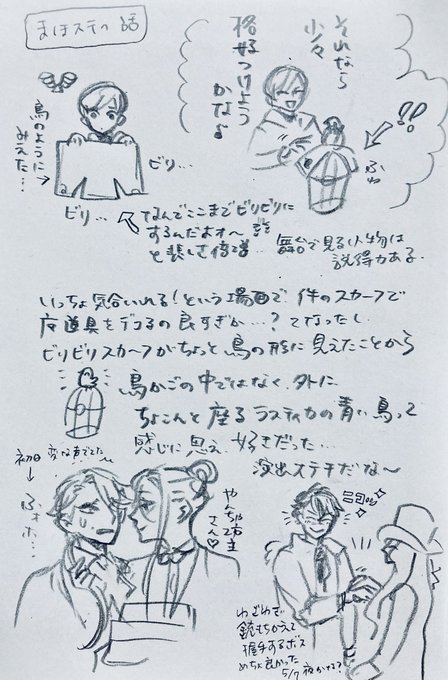 まほステの話
それなら
少々
格好つけよう
かな♪
!!
ふわ
鳥のように
みえた…
ビリ…
ビリ…
なんでここまでビリビリに
するんだよオ〜
と悲しさ倍増
舞台で見る小物は
説得力ある
いっちょ気合いれる!という場面で、件のスカーフで
魔道具をデコるの良すぎか…?てなったし
ビリビリスカーフがちょっと鳥の形に見えたことから
鳥かごの中ではなく、外に
ちょこんと座るラスティカの青い鳥って
感じに思え、好きだった…
演出ステキだな〜
初日変な声でてた
ふぉホ…
やんちゃ坊主
さん♡
わざわざ
銃もちかえて
握手するボス
めちょ良かった
5/7夜かな??